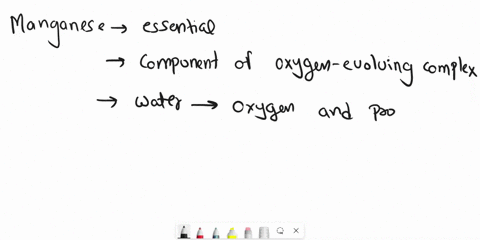 Manganese → essential
→ component of oxygen-evolving complex
→ water → oxygen and pro